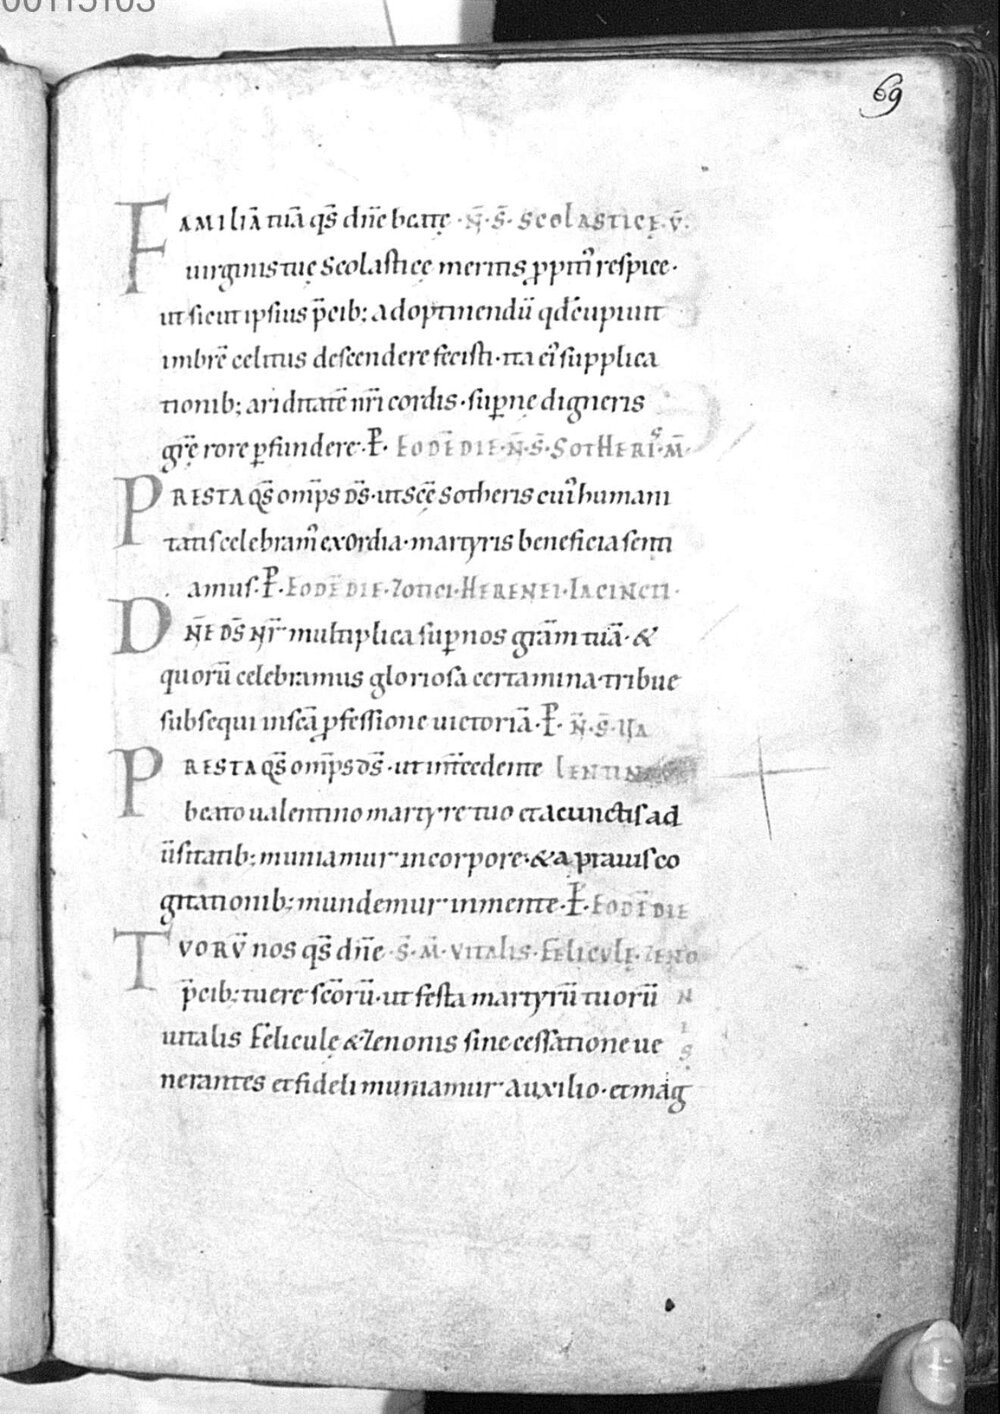 00113103
69
FAMILIĀ tuā qs̄ dn̄e beatę · N̄ · S̄ · Scolasticę · V̄ ·
uirginis tuę Scolasticę meritis ꝓpitī respice ·
ut sicut ipsius p̄cib; adoptinendū qd̄ cupiunt
imbrē celitus descendere fecisti · ita eī supplica
tionib; ariditatē nr̄i cordis · suꝑnę digneris
grē̄ rore ꝑfundere · P̄ · EODĒ DIE · N̄ · S̄ · SOTHERĪS · M̄ ·
PRESTA qs̄ omp̄s ds̄ · ut scē Sotheris cuī humani
tatis celebram̄ exordia · martyris beneficia senti
amus · P̄ · EODĒ DIE · Zotici · HERENEI · IACINCTI ·
DN̄E DS̄ NR̄ multiplica suꝑ nos grām tuā · &
quorū celebramus gloriosa certamina · tribue
subsequi in scā ꝓfessione uictoriā · P̄ · N̄ · S̄ · UA
PRESTA qs̄ omp̄s ds̄ · ut intēcedente LENTIN
beato ualentino martyre tuo et a cunctis ad
ūsitatib; muniamur in corpore · & a prauis co
gitationib; mundemur in mente · P̄ · EODĒ DIE
TVORV̄ nos qs̄ dn̄e · S̄ · M̄ · VITALIS · FELICVLĘ · ZENO
p̄cib; tuere scōrū · ut festa martyrū tuorū N
I
uitalis Feliculę & Zenonis sine cessatione ue S
nerantes et fideli muniamur auxilio · et mag